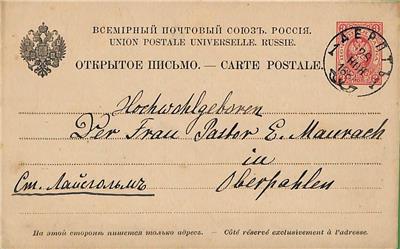 ВСЕМІРНЫЙ ПОЧТОВЫЙ СОЮЗЪ. РОССІЯ.
UNION POSTALE UNIVERSELLE. RUSSIE.
ОТКРЫТОЕ ПИСЬМО. — CARTE POSTALE.
ДЕРПТЪ
Hochwohlgeboren
Der Frau Pastor E. Maurach
in
Ст. Лайсгольмъ
Oberpahlen
На этой сторонѣ пишется только адресъ. — Côté réservé exclusivement à l'adresse.